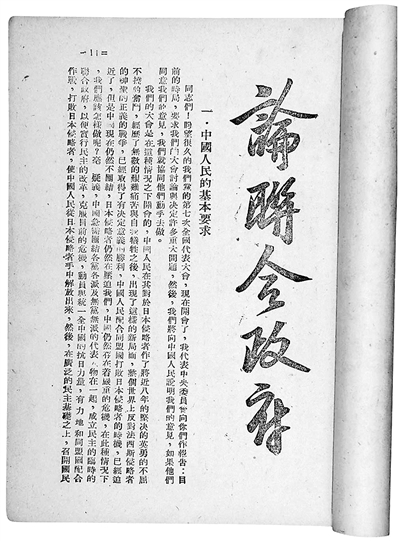 論聯合政府
一·中國人民的基本要求
同志們!盼望很久的我們黨的第七次全國代表大會,現在開會了,我代表中央委員會向你們作報告:目
前的時局,要求我們的大會討論與決定許多重大問題,然後,我們將向中國人民說明我們的意見,如果他們
同意我們的意見,我們就協同他們動手去做。
我們的大會是在這種情況之下開會的,中國人民在其對於日本侵略者作了將近八年的堅決的英勇的不屈
不撓的奮鬥,經歷了無數的艱難痛苦與自我犧牲之後,出現了這樣的新局面,整個世界上反對法西斯侵略者
的神聖的正義的戰爭,已經取得了有決定意義的勝利,中國人民配合同盟國打敗日本侵略者的時機,已經迫
近了,但是中國現在仍然不團結,日本侵略者仍然在壓迫我們,中國仍然存在着嚴重的危機,在此種情況下
,我們應該怎樣做呢?毫 疑義,中國急需團結各黨各派及無黨無派的代表人物在一起,成立民主的臨時的
聯合政府,以便實行民主的改革,克服目前的危機,動員與統一全中國的抗日力量,有力 地和同盟國配合
作戰,打敗日本侵略者,使中國人民從日本侵略者手中解放出來,然後,在廣泛的民主基礎之上,召開國民